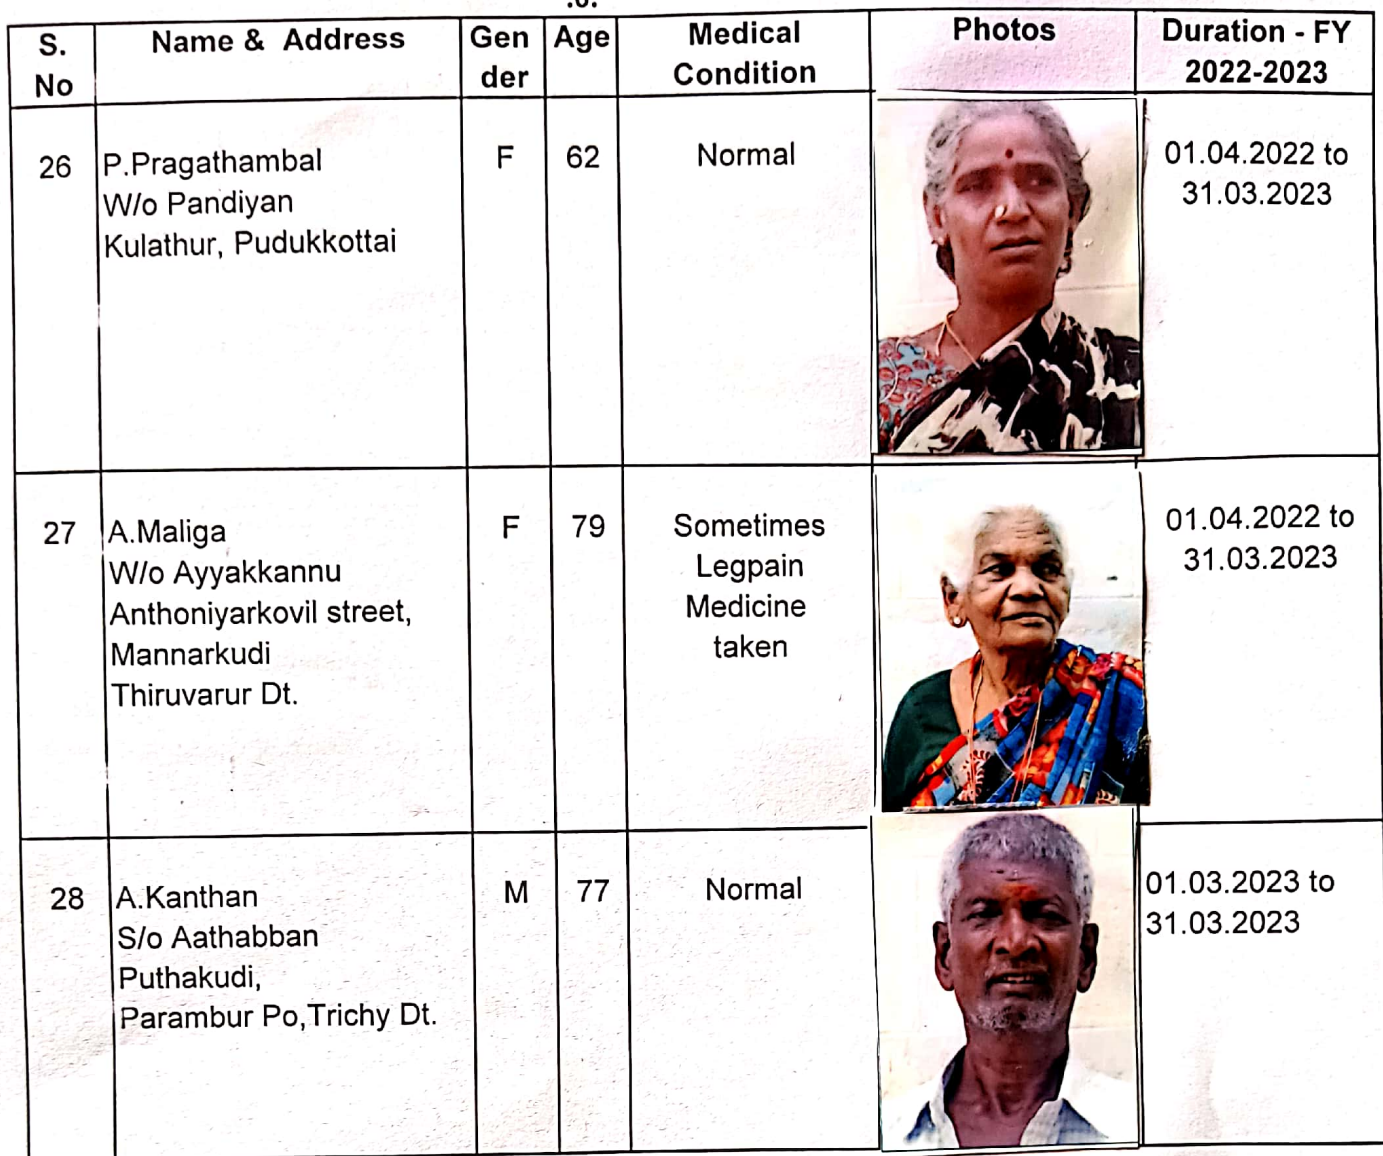 .6.
S. No
Name & Address
Gen der
Age
Medical Condition
Photos
Duration - FY 2022-2023
26
P.Pragathambal
W/o Pandiyan
Kulathur, Pudukkottai
F
62
Normal
01.04.2022 to
31.03.2023
27
A.Maliga
W/o Ayyakkannu
Anthoniyarkovil street,
Mannarkudi
Thiruvarur Dt.
F
79
Sometimes
Legpain
Medicine
taken
01.04.2022 to
31.03.2023
28
A.Kanthan
S/o Aathabban
Puthakudi,
Parambur Po,Trichy Dt.
M
77
Normal
01.03.2023 to
31.03.2023